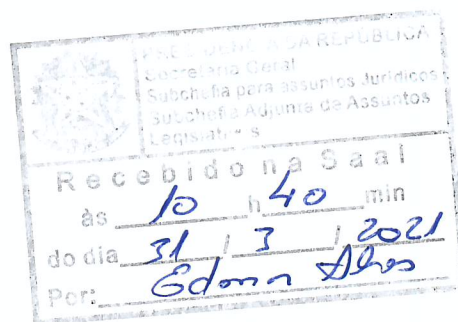 PRESIDÊNCIA DA REPÚBLICA
Secretaria Geral
Subchefia para assuntos Jurídicos
Subchefia Adjunta de Assuntos
Legislativos
Recebido na Saal
às 10 h 40 min
do dia 31 / 3 / 2021
Por: Alves